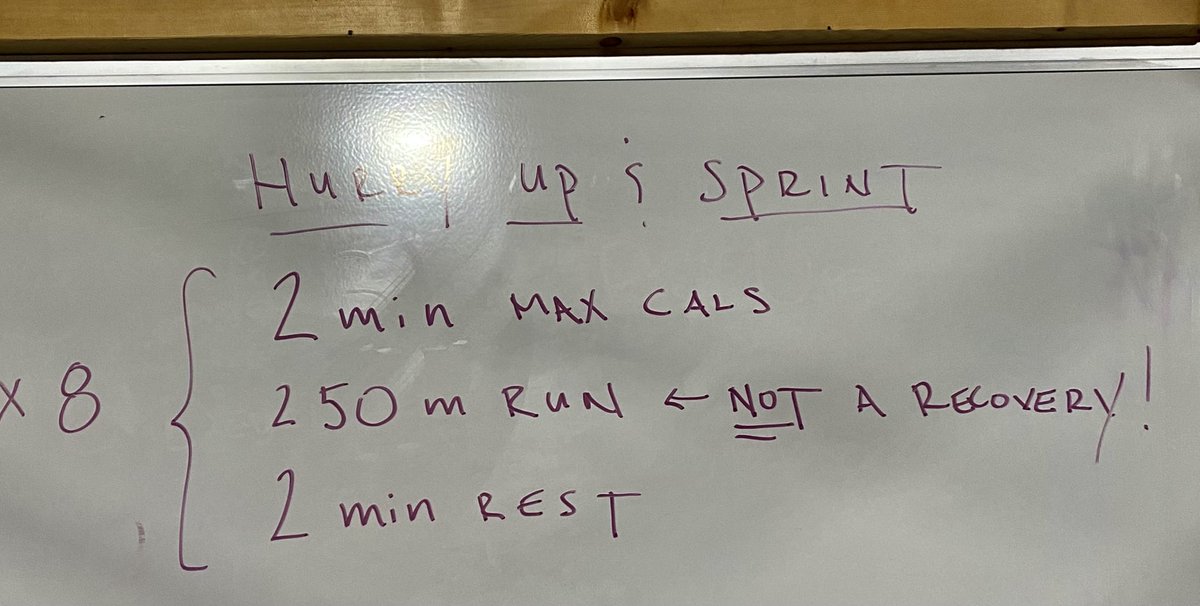 HURRY UP & SPRINT
2 min MAX CALS
x 8 250 m RUN ← NOT A RECOVERY!
2 min REST